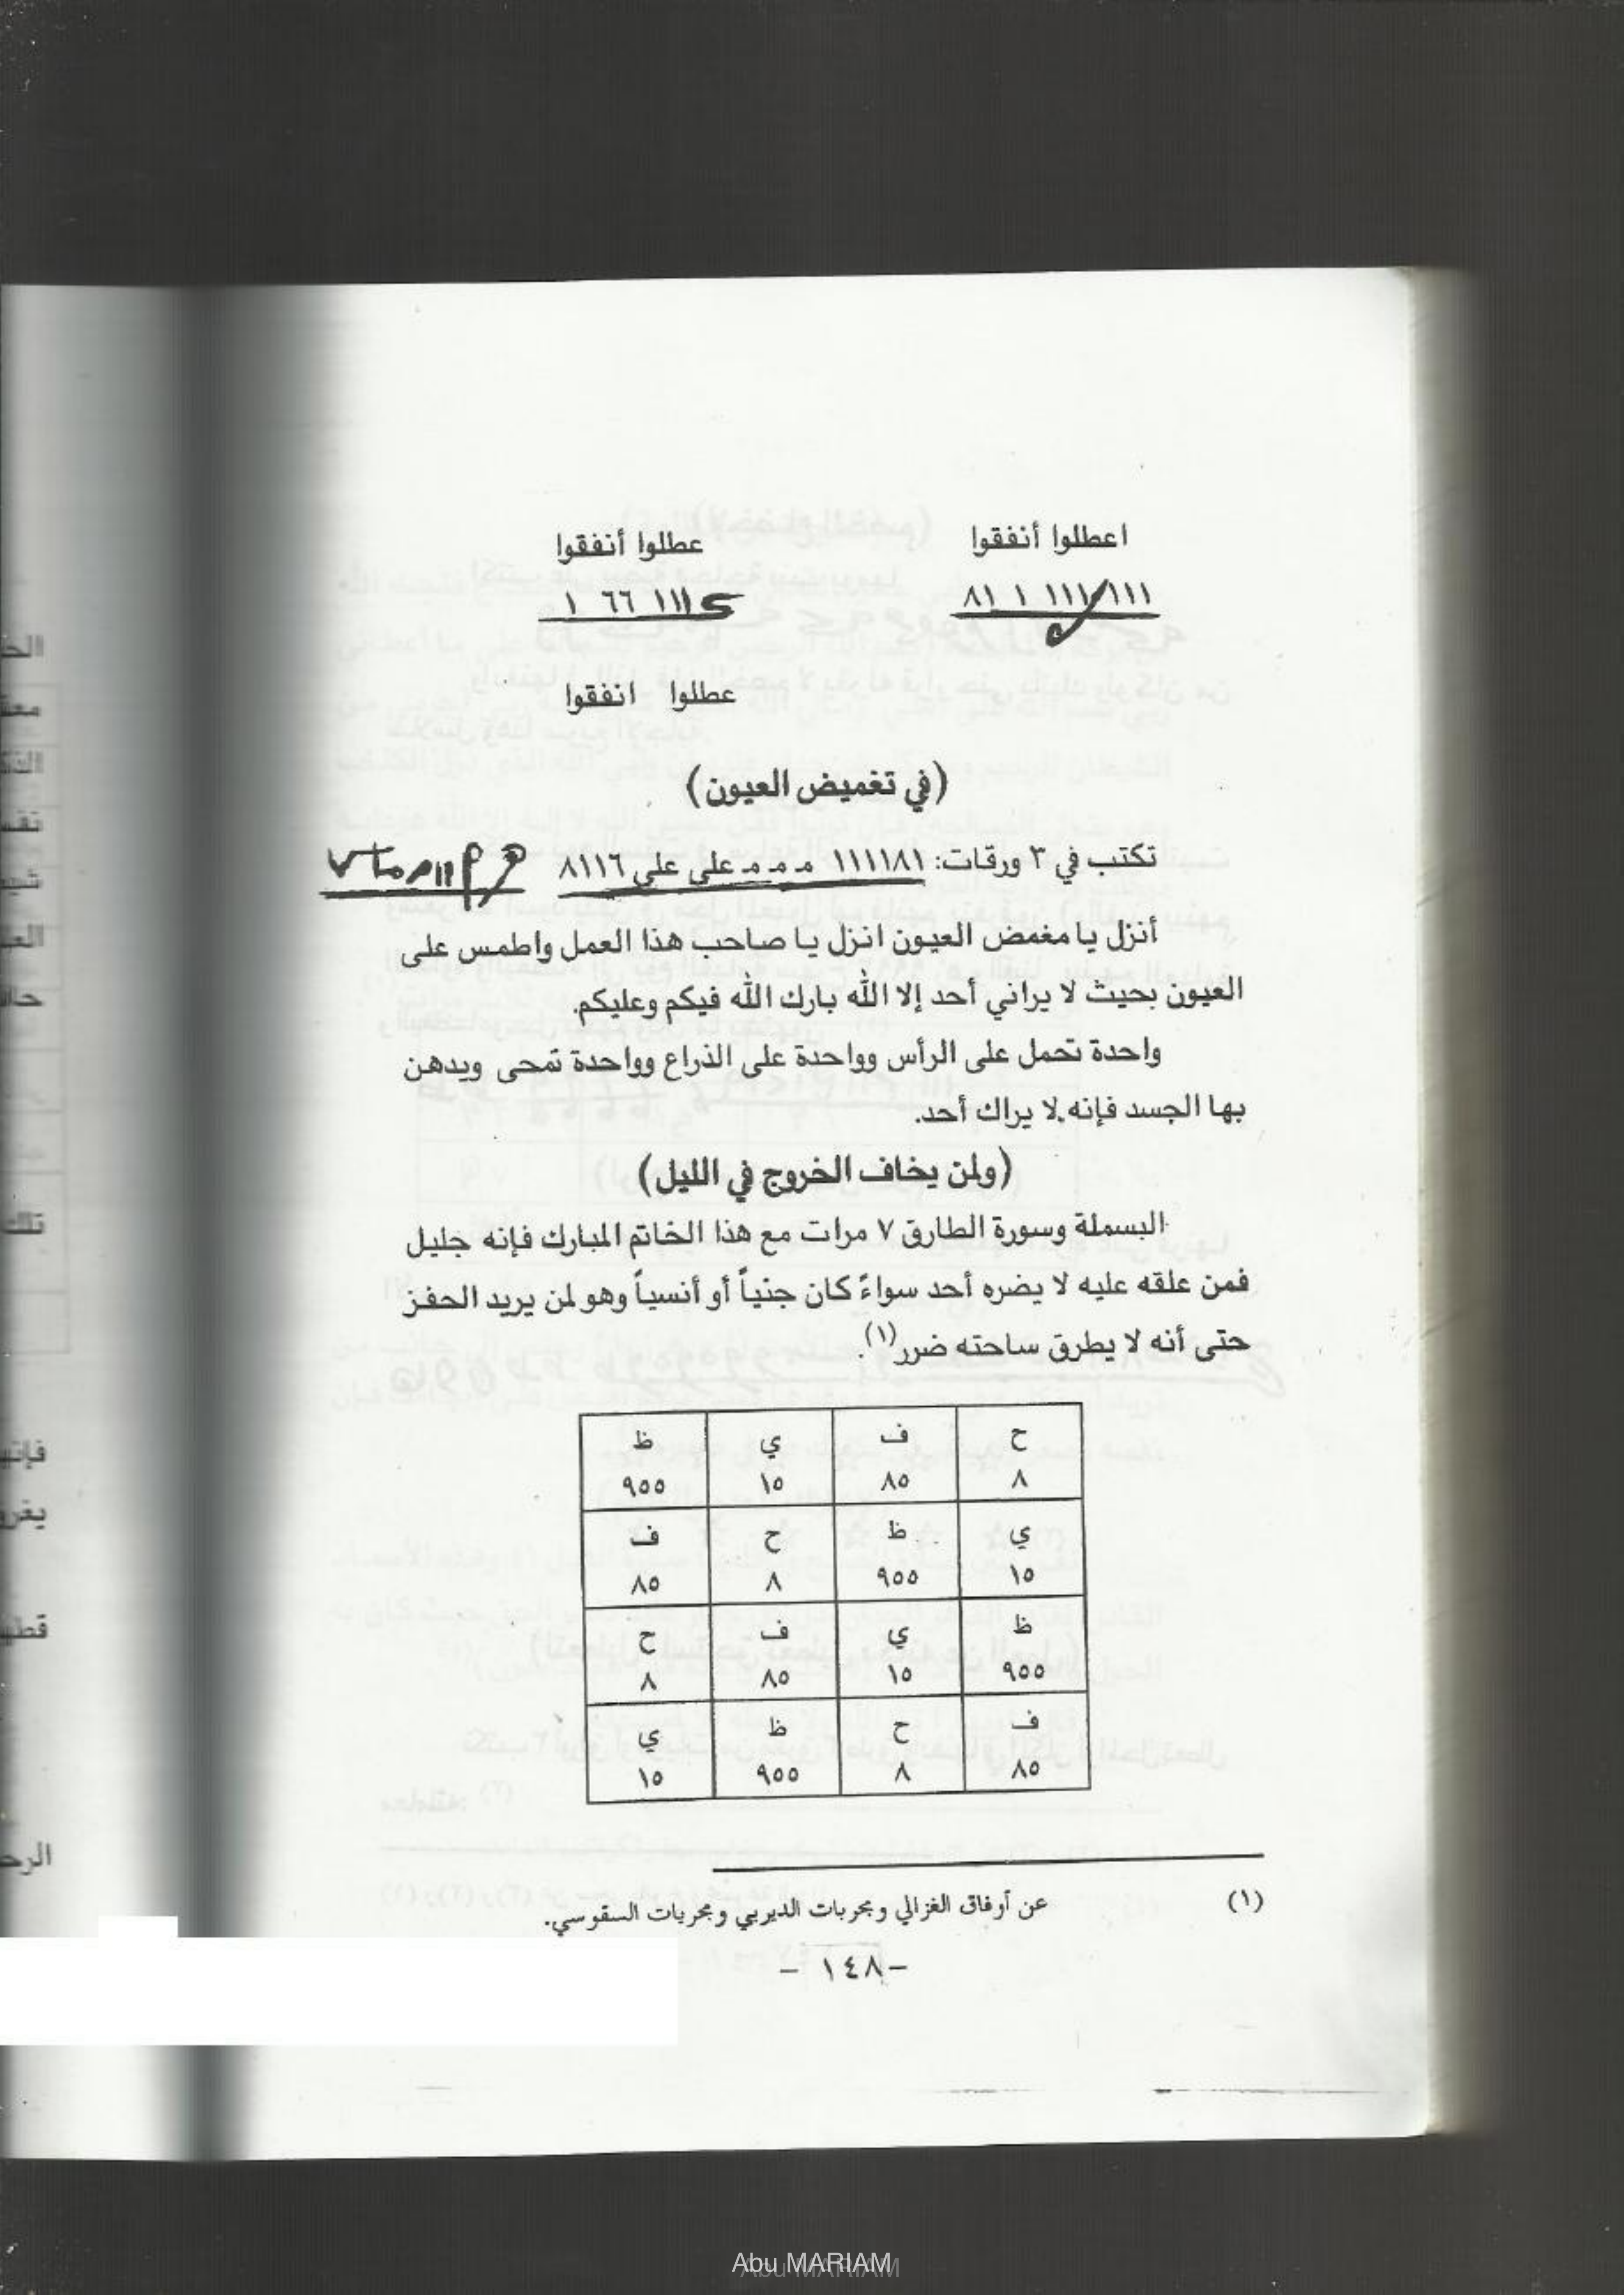 اعطلوا أنفقوا
عطلوا أنفقوا
١١١ ١١١ ١ ٨١
١١١ ٦٦ ١
عطلوا انفقوا
(في تغميض العيون)
تكتب في ٣ ورقات: ١١١١٨١ مـ مـ مـ على على ٨١١٦
أنزل يا مغمض العيون انزل يا صاحب هذا العمل واطمس على
العيون بحيث لا يراني أحد إلا الله بارك الله فيكم وعليكم.
واحدة تحمل على الرأس وواحدة على الذراع وواحدة تمحى ويدهن
بها الجسد فإنه لا يراك أحد.
(ولمن يخاف الخروج في الليل)
البسملة وسورة الطارق ٧ مرات مع هذا الخاتم المبارك فإنه جليل
فمن علقه عليه لا يضره أحد سواءً كان جنياً أو أنسياً وهو لمن يريد الحفز
حتى أنه لا يطرق ساحته ضرر(١).
ح ف ي ظ
٨ ٨٥ ١٥ ٩٥٥
ي ظ ح ف
١٥ ٩٥٥ ٨ ٨٥
ظ ي ف ح
٩٥٥ ١٥ ٨٥ ٨
ف ح ظ ي
٨٥ ٨ ٩٥٥ ١٥
(١) عن أوفاق الغزالي ومجربات الديربي ومجربات السقوسي.
- ١٤٨ -
Abu MARIAM